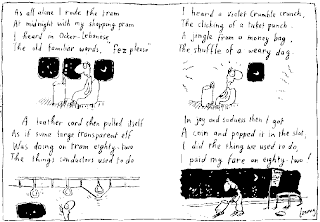 As all alone I rode the tram
At midnight with my shopping pram
I heard in Ocker-Lebanese
The old familiar words, "Fez please"
I heard a violet crumble crunch,
The clicking of a ticket punch
A jingle from a money bag,
The shuffle of a weary dag
A leather cord then pulled itself
As if some large transparent elf
Was doing on tram eighty-two
The things conductors used to do
In joy and sadness then I got
A coin and popped it in the slot,
I did the thing we used to do,
I paid my fare on eighty-two!
Leunig